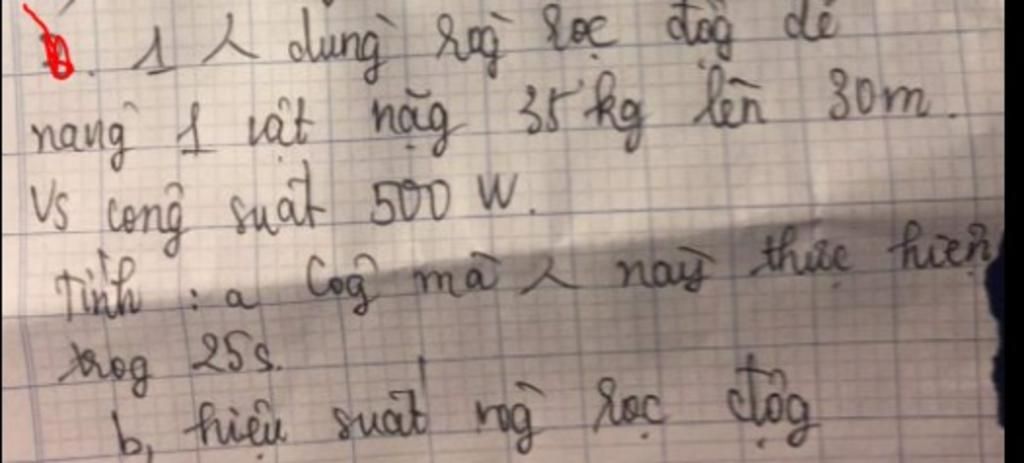 1 人 dùng ròg rọc độg để
nang 1 vật nặg 35 kg lên 30m.
Vs công suất 500 W.
Tính : a Côg mà 人 này thực hiện
trog 25s.
b, hiệu suất ròg rọc độg